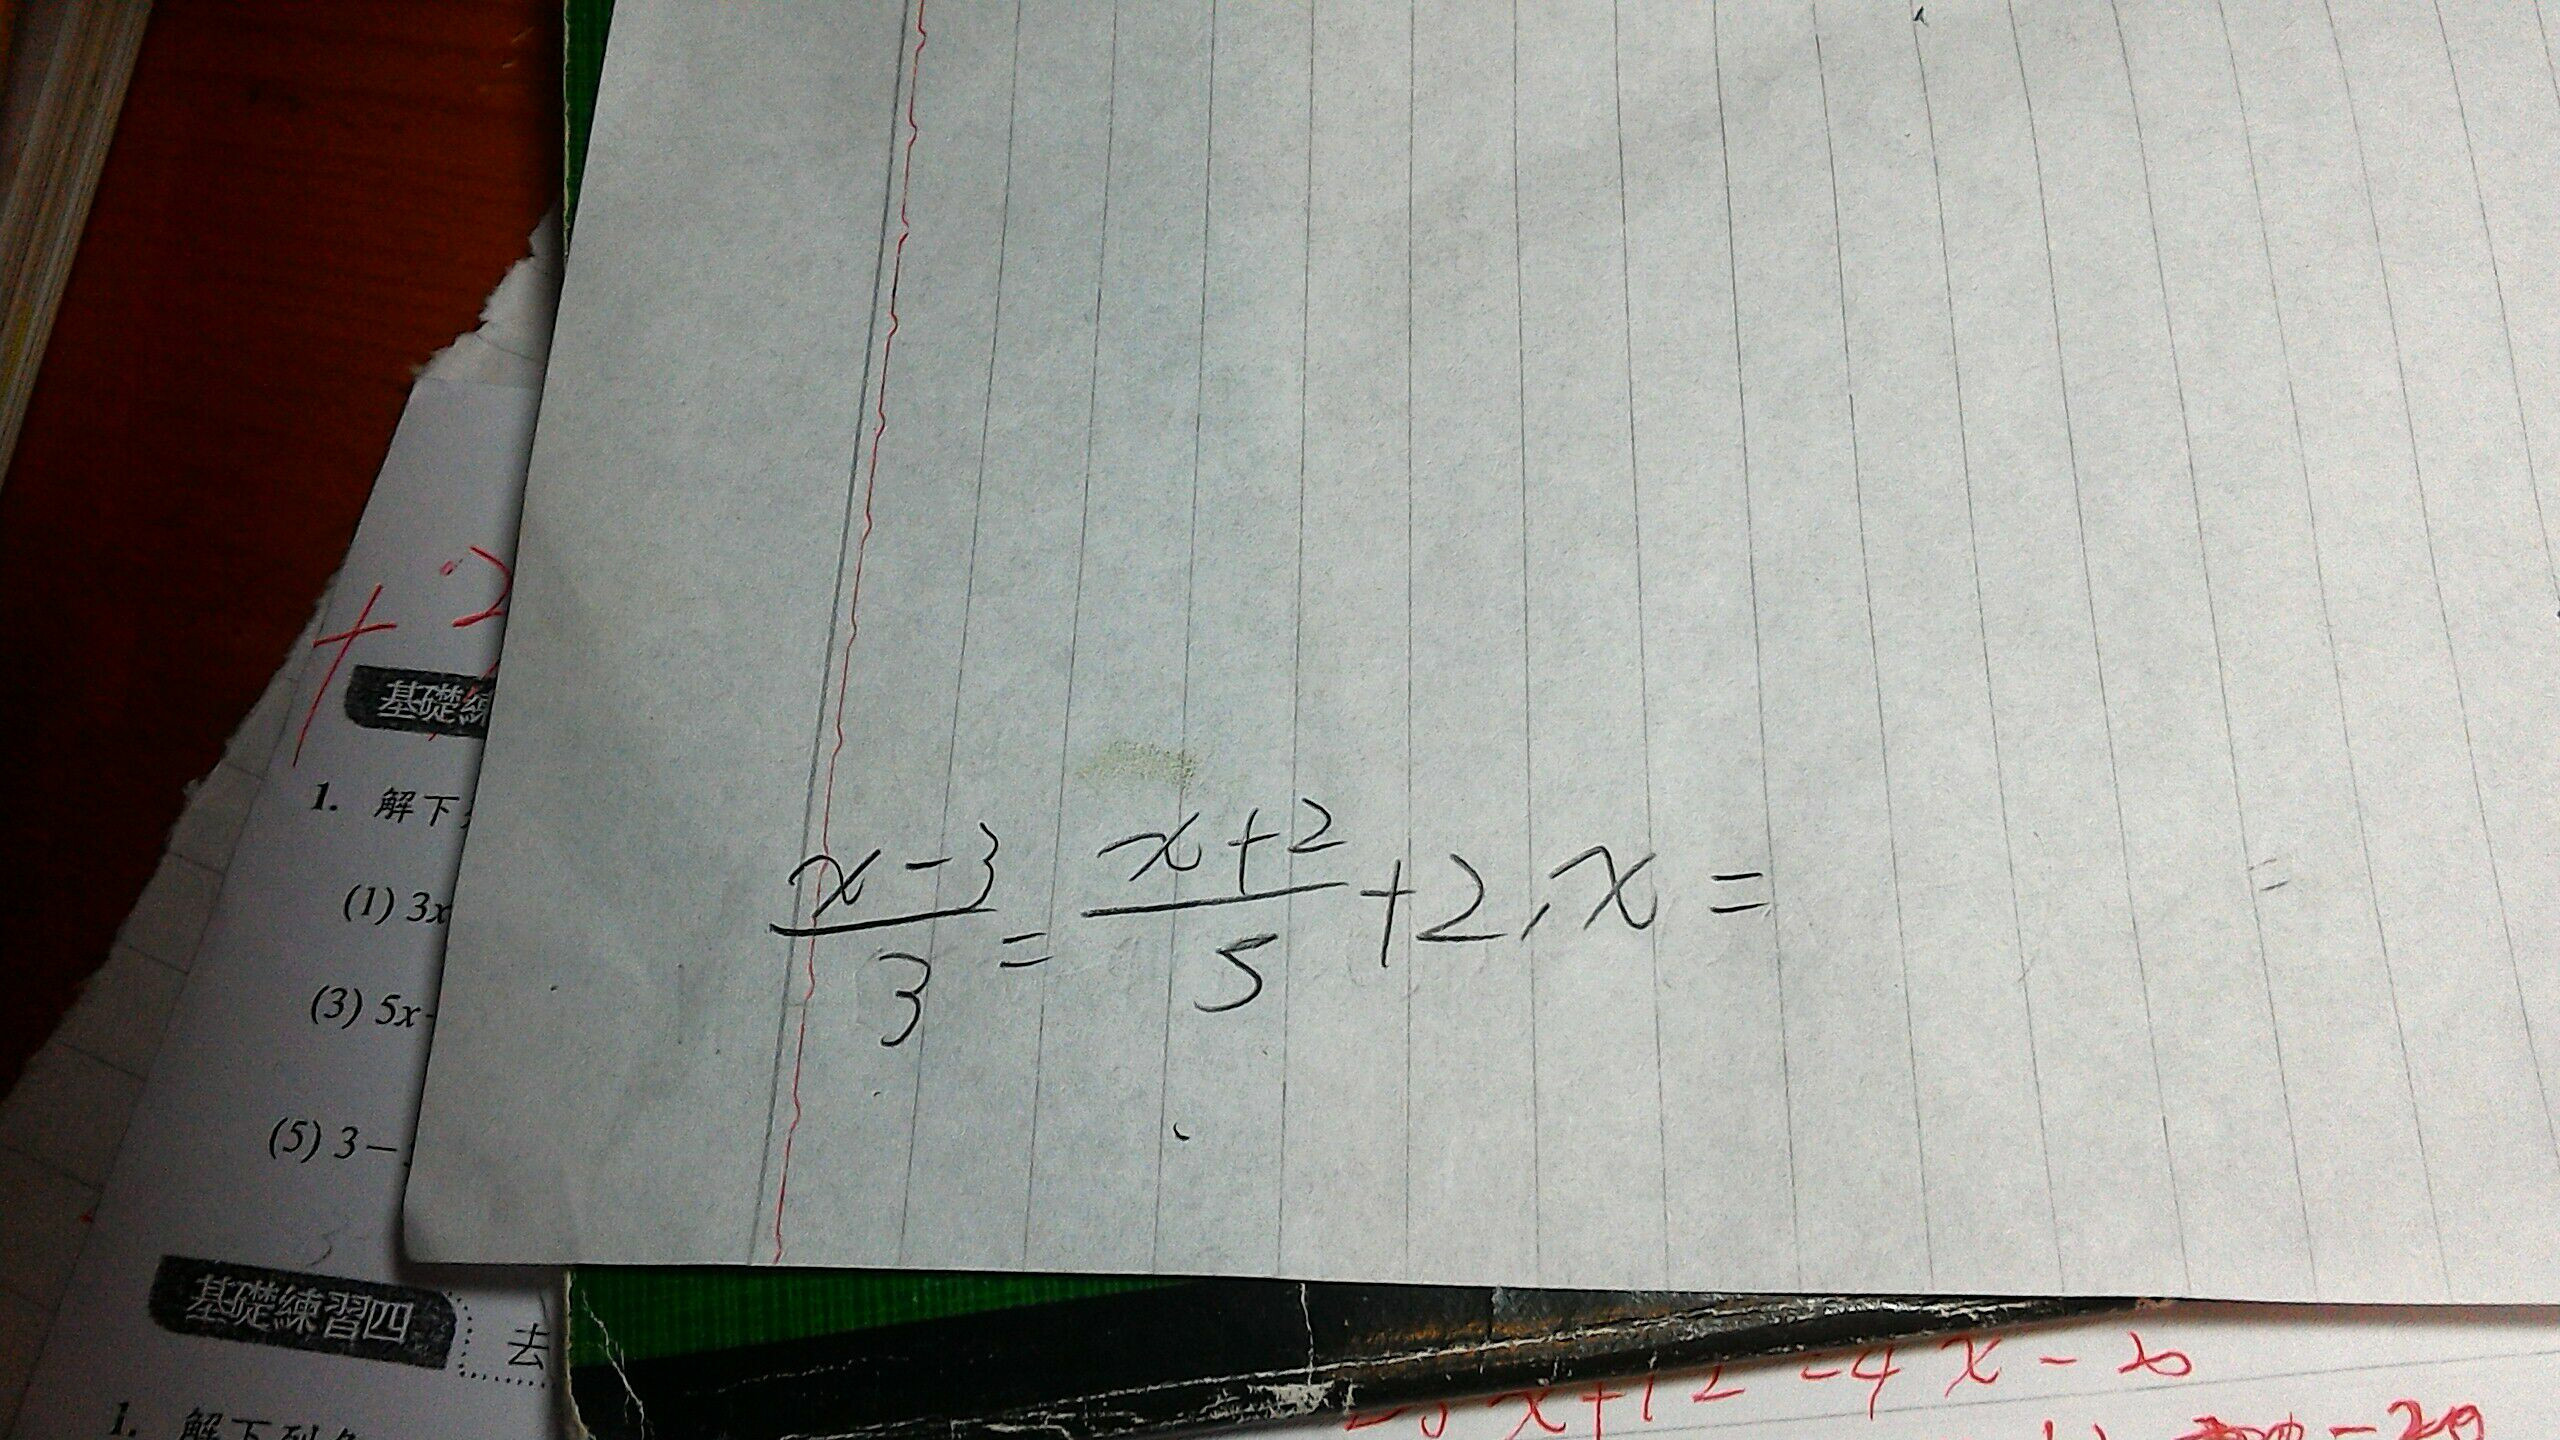 + 2
基礎練
1. 解下
(1) 3x
(3) 5x-
(5) 3-
x-3/3 = x+2/5 +2, x =
=
基礎練習四
去
1. 解下列各
x+12-4x-20